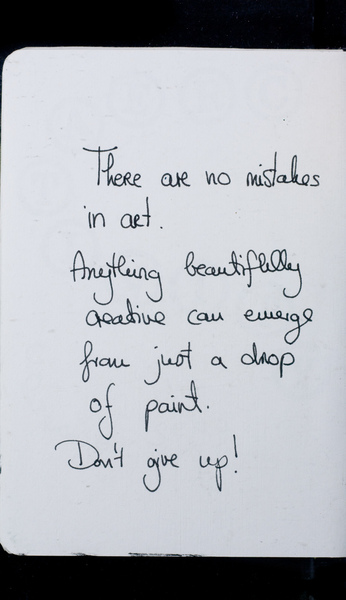 There are no mistakes
in art.
Anything beautifully
creative can emerge
from just a drop
of paint.
Don't give up!